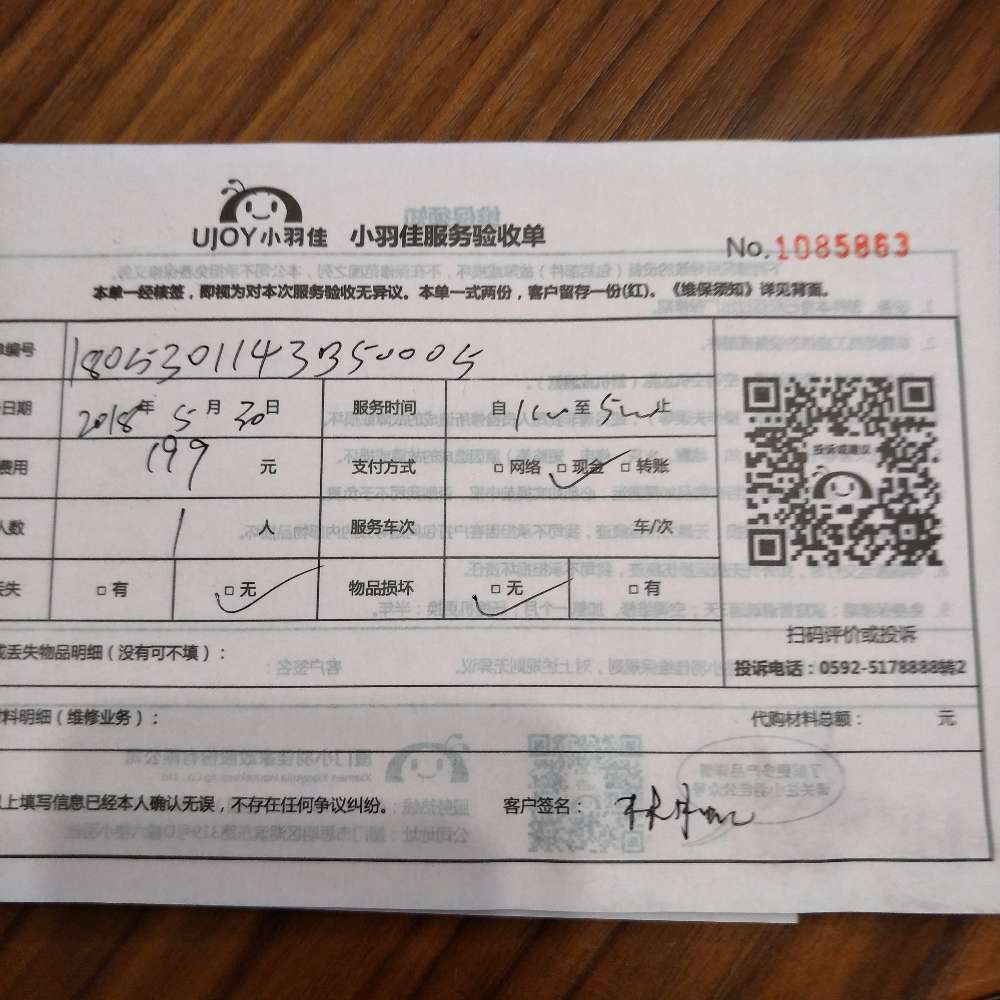 UJOY小羽佳 小羽佳服务验收单
No.1085863
本单一经核签，即视为对本次服务验收无异议。本单一式两份，客户留存一份(红)。《维保须知》详见背面。
单编号 1805301143B50005
日期 2018年 5月 30日 服务时间 自 至 止
费用 199 元 支付方式 □ 网络 □ 现金 □ 转账
人数 1 人 服务车次 车/次
丢失 □ 有 □ 无 物品损坏 □ 无 □ 有
投诉或建议
扫码评价或投诉
投诉电话：0592-5178888转2
或丢失物品明细（没有可不填）：
材料明细（维修业务）： 代购材料总额： 元
以上填写信息已经本人确认无误，不存在任何争议纠纷。 客户签名：